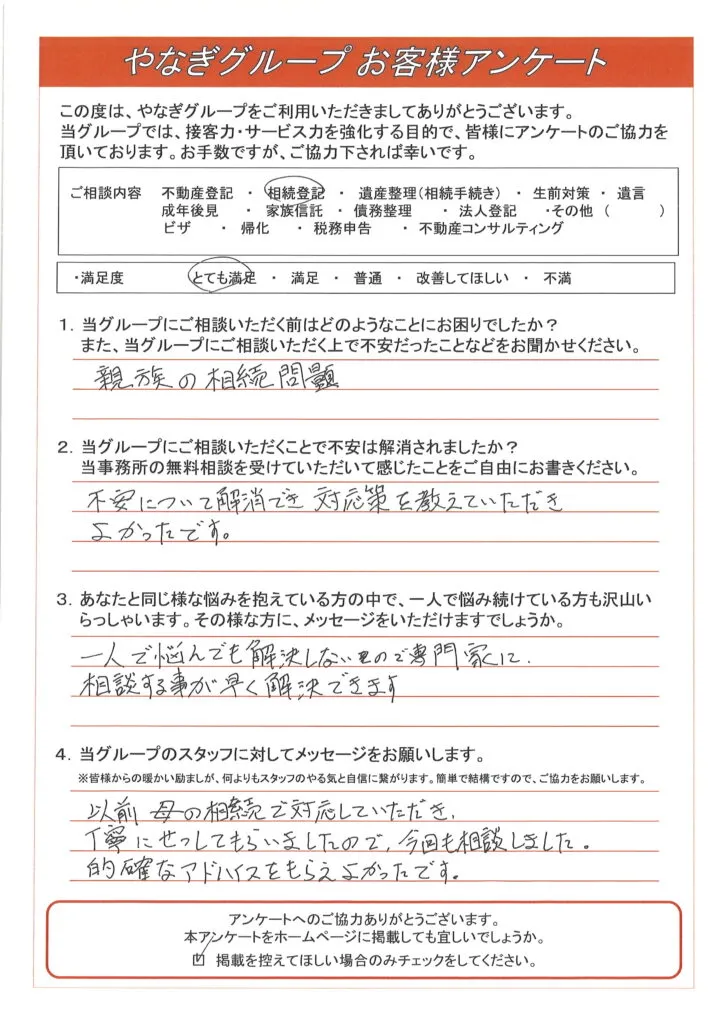 やなぎグループ お客様アンケート
この度は、やなぎグループをご利用いただきましてありがとうございます。
当グループでは、接客力・サービス力を強化する目的で、皆様にアンケートのご協力を
頂いております。お手数ですが、ご協力下されば幸いです。
ご相談内容 不動産登記 ・ 相続登記 ・ 遺産整理(相続手続き) ・ 生前対策 ・ 遺言
成年後見 ・ 家族信託 ・ 債務整理 ・ 法人登記 ・その他 ( )
ビザ ・ 帰化 ・ 税務申告 ・ 不動産コンサルティング
・満足度 とても満足 ・ 満足 ・ 普通 ・ 改善してほしい ・ 不満
1. 当グループにご相談いただく前はどのようなことにお困りでしたか?
また、当グループにご相談いただく上で不安だったことなどをお聞かせください。
親族の相続問題
2. 当グループにご相談いただくことで不安は解消されましたか?
当事務所の無料相談を受けていただいて感じたことをご自由にお書きください。
不安について解消でき 対応策を教えていただき
よかったです。
3. あなたと同じ様な悩みを抱えている方の中で、一人で悩み続けている方も沢山い
らっしゃいます。その様な方に、メッセージをいただけますでしょうか。
一人で悩んでも解決しないものので専門家に、
相談する事が早く解決できます
4. 当グループのスタッフに対してメッセージをお願いします。
※皆様からの暖かい励ましが、何よりもスタッフのやる気と自信に繋がります。簡単で結構ですので、ご協力をお願いします。
以前 母の相続で対応していただき、
丁寧にせっしてもらいましたので、今回も相談しました。
的確なアドバイスをもらえよかったです。
アンケートへのご協力ありがとうございます。
本アンケートをホームページに掲載しても宜しいでしょうか。
☑ 掲載を控えてほしい場合のみチェックをしてください。